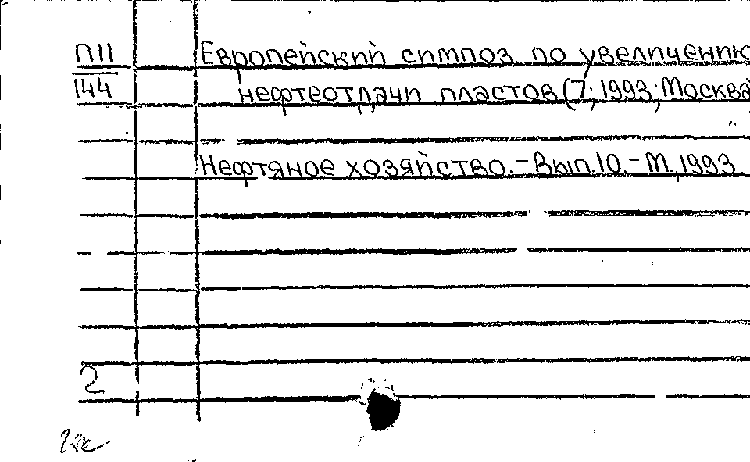 П11 Европейский симпоз по увеличению
144 нефтеотдачи пластов (7; 1993; Москва
Нефтяное хозяйство.-Вып.10.-М,1993
2